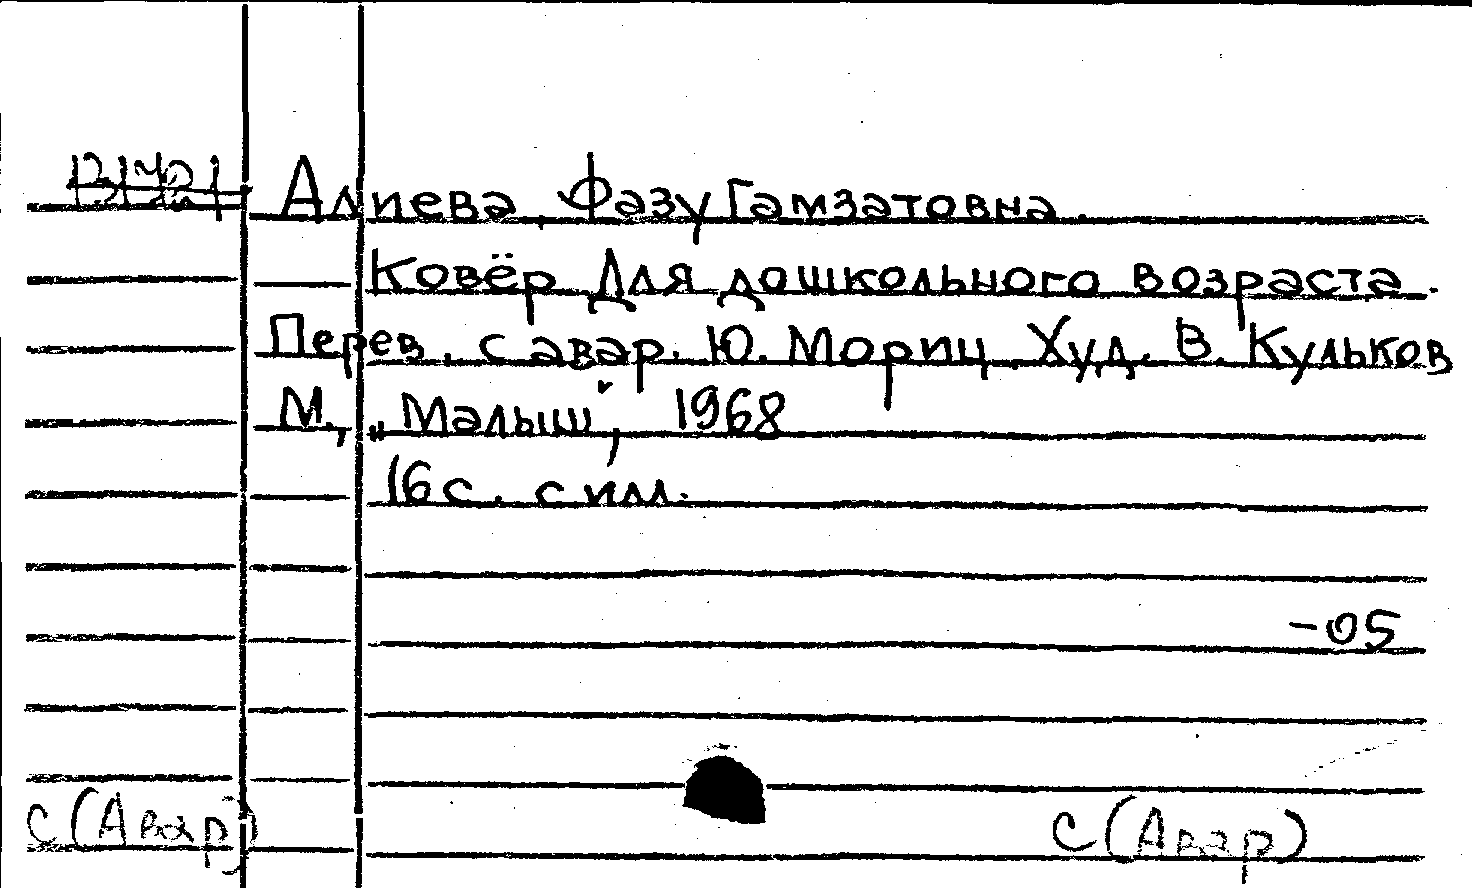 Алиева, Фазу Гамзатовна.
Ковёр Для дошкольного возраста.
Перев. с авар. Ю. Мориц. Худ. В. Кульков
М., „Малыш", 1968
16 с. с илл.
-05
С (Авар) С (Авар)